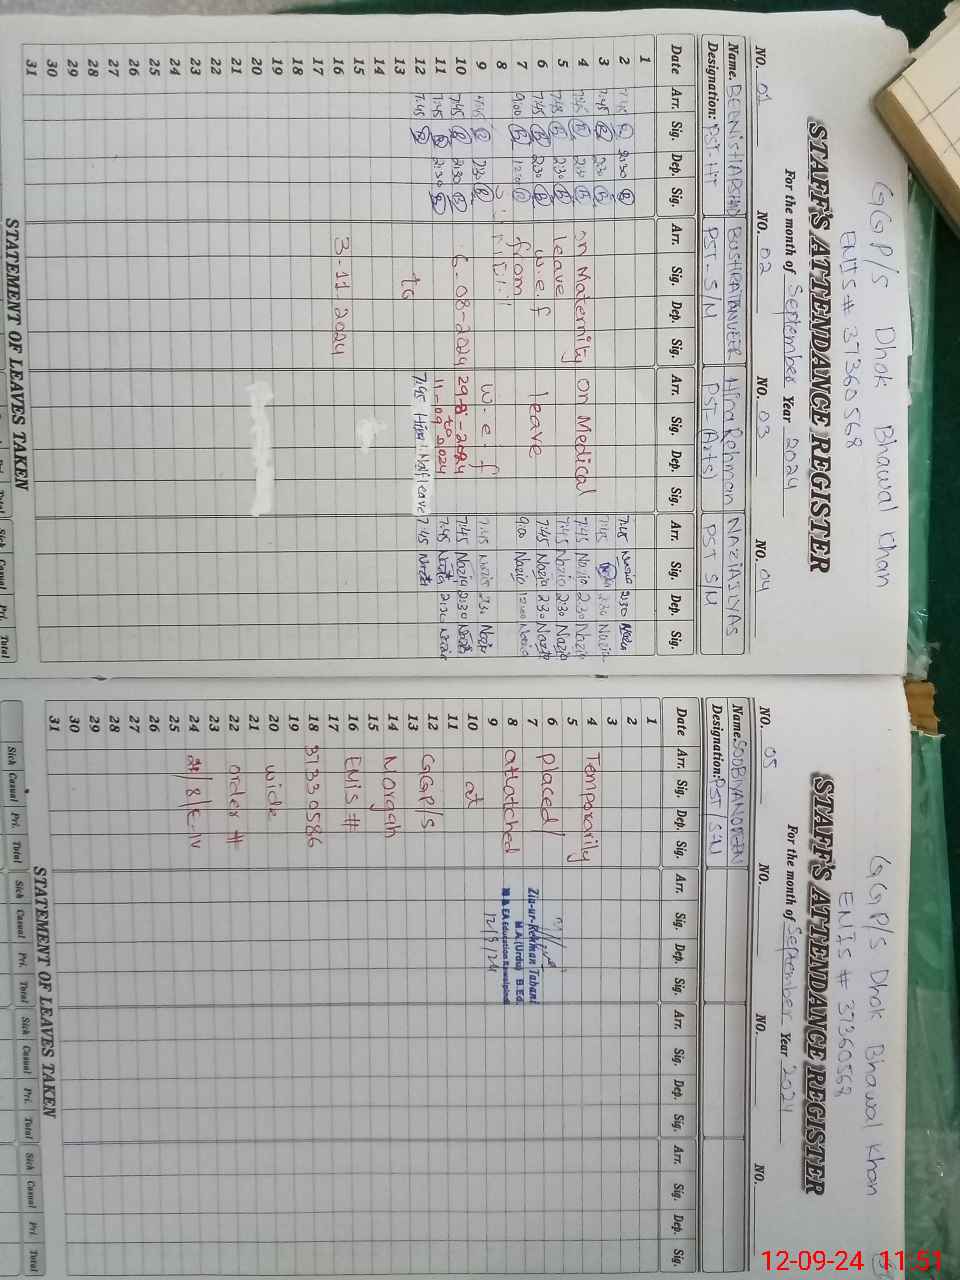 GGP/S Dhok Bhawal Khan
EMIS # 37360568
STAFF'S ATTENDANCE REGISTER
For the month of September Year 2024
NO. 01 NO. 02 NO. 03 NO. 04
Name. BUSHRA TANVEER Hina Rehman NAZIA ILYAS
Designation: PST-HT PST-S/M PST (Arts) PST S/M
Date Arr. Sig. Dep. Sig. Arr. Sig. Dep. Sig. Arr. Sig. Dep. Sig. Arr. Sig. Dep. Sig.
1
2 7:45 2:30 7:45 Nazia 2:30 Nazia
3 7:45 2:30 7:45 2:30 Nazia
4 7:45 2:30 on Maternity on Medical 7:45 Nazia 2:30 Nazia
5 7:45 2:30 leave 7:45 Nazia 2:30 Nazia
6 7:45 2:30 w.e.f leave 7:45 Nazia 2:30 Nazia
7 9:00 12:00 from 9:00 Nazia 12:00 Nazia
8
9 7:45 2:30 w.e.f 7:45 Nazia 2:30 Nazia
10 7:45 2:30 6.08-2024 29-8-2024 7:45 Nazia 2:30 Nazia
to
11 7:45 2:30 11-09-2024 7:45 Nazia 2:30 Nazia
12 7:45 to 7:45 Hina Half leave 7:45 Nazia
13
14
15
16 3-11.2024
17
18
19
20
21
22
23
24
25
26
27
28
29
30
31
STATEMENT OF LEAVES TAKEN
Sick Casual Pri. Total
GGP/S Dhok Bhawal Khan
EMIS # 37360568
STAFF'S ATTENDANCE REGISTER
For the month of September Year 2024
NO. 05 NO. NO. NO.
Name. SOOBIYA NOREEN
Designation: PST/S-M
Date Arr. Sig. Dep. Sig. Arr. Sig. Dep. Sig. Arr. Sig. Dep. Sig. Arr. Sig. Dep. Sig.
1
2
3
4 Temporarily
5
6 placed/
7 Zia-ur-Rehman Tabani
M.A (Urdu) B.Ed.
8 attatched M & EA Education Rawalpindi
9 12/9/24
10 at
11
12 GGP/S
13
14 Norgah
15
16 EMIS #
17
18 37330586
19
20 wide
21
22 order #
23
24
25
26
27
28
29
30
31
STATEMENT OF LEAVES TAKEN
Sick Casual Pri. Total Sick Casual Pri. Total Sick Casual Pri. Total Sick Casual Pri. Total
12-09-24 11:51